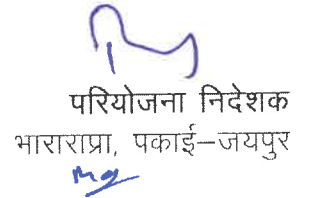 परियोजना निदेशक
भाराराप्रा, पकाई–जयपुर